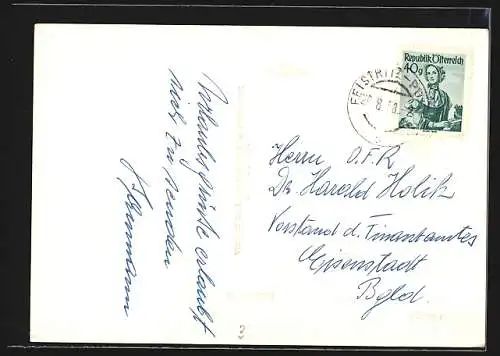 Urlaubsgrüsse erlaubt
sich zu senden
Republik Österreich
40g
FEISTRITZ
Herrn O.F.R.
Dr. Harald Holik
Vorstand d. Finanzamtes
Eisenstadt
Bgld.